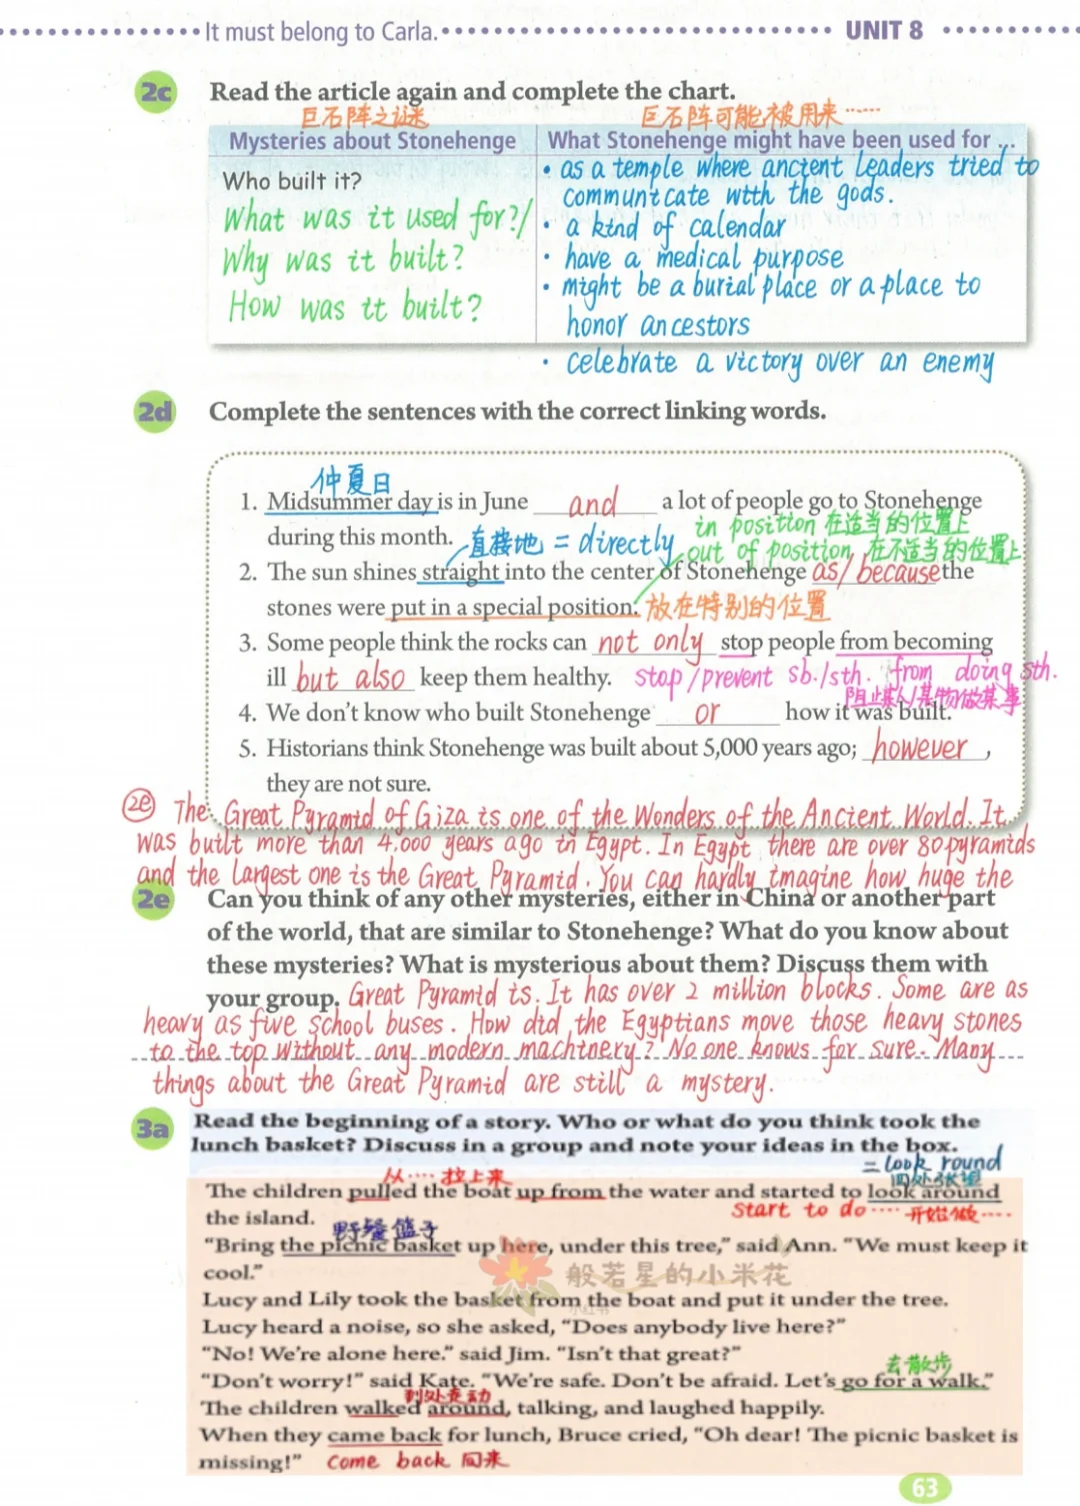 It must belong to Carla.
UNIT 8
2c Read the article again and complete the chart.
巨石阵之谜
巨石阵可能被用来……
Mysteries about Stonehenge
What Stonehenge might have been used for ...
Who built it?
What was it used for?/
Why was it built?
How was it built?
• as a temple where ancient leaders tried to
communicate with the gods.
• a kind of calendar
• have a medical purpose
• might be a burial place or a place to
honor ancestors
• celebrate a victory over an enemy
2d Complete the sentences with the correct linking words.
仲夏日
1. Midsummer day is in June and a lot of people go to Stonehenge
in position 在适当的位置上
during this month. 直接地 = directly
out of position 在不适当的位置上
2. The sun shines straight into the center of Stonehenge as/because the
stones were put in a special position. 放在特别的位置
3. Some people think the rocks can not only stop people from becoming
ill but also keep them healthy. stop/prevent sb./sth. from doing sth.
阻止某人/某物做某事
4. We don't know who built Stonehenge or how it was built.
5. Historians think Stonehenge was built about 5,000 years ago; however,
they are not sure.
2e The Great Pyramid of Giza is one of the Wonders of the Ancient World. It
was built more than 4.000 years ago in Egypt. In Egypt there are over 80 pyramids
and the largest one is the Great Pyramid. You can hardly imagine how huge the
2e Can you think of any other mysteries, either in China or another part
of the world, that are similar to Stonehenge? What do you know about
these mysteries? What is mysterious about them? Discuss them with
your group. Great Pyramid is. It has over 2 million blocks. Some are as
heavy as five school buses. How did the Egyptians move those heavy stones
to the top without any modern machinery? No one knows for sure. Many
things about the Great Pyramid are still a mystery.
3a Read the beginning of a story. Who or what do you think took the
lunch basket? Discuss in a group and note your ideas in the box.
= look round
从……拉上来
四处张望
The children pulled the boat up from the water and started to look around
the island.
start to do…… 开始做……
野餐篮子
"Bring the picnic basket up here, under this tree," said Ann. "We must keep it
cool."
般若星的小米花
小红书
Lucy and Lily took the basket from the boat and put it under the tree.
Lucy heard a noise, so she asked, "Does anybody live here?"
"No! We're alone here." said Jim. "Isn't that great?"
去散步
"Don't worry!" said Kate. "We're safe. Don't be afraid. Let's go for a walk."
到处走动
The children walked around, talking, and laughed happily.
When they came back for lunch, Bruce cried, "Oh dear! The picnic basket is
missing!" come back 回来
63